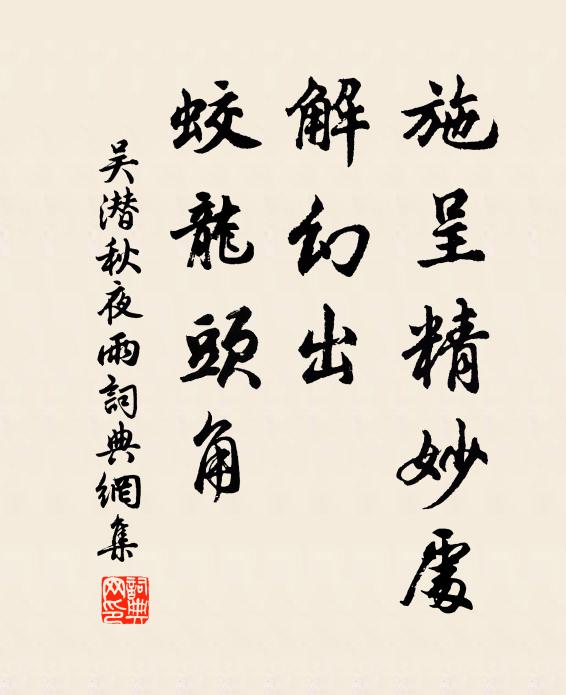 施呈精妙處
解幻出
蛟龍頭角
吴潜秋夜雨詞典網集
詞典网印